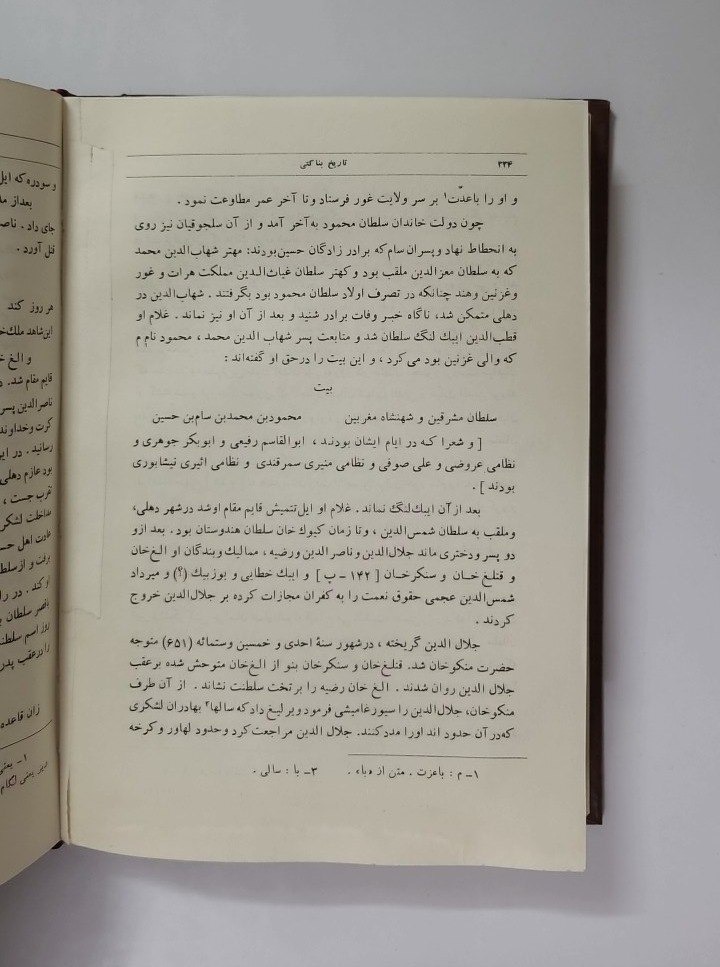 ۳۳۴
تاریخ بناکتی
و او را باعدّت۱ بر سر ولایت غور فرستاد و تا آخر عمر مطاوعت نمود .
چون دولت خاندان سلطان محمود به‌آخر آمد و از آن سلجوقیان نیز روی
به انحطاط نهاد و پسران سام که برادر زادگان حسین بودند: مهتر شهاب‌الدین محمد
که به سلطان معزالدین ملقب بود و کهتر سلطان غیاث‌الدین مملکت هرات و غور
و غزنین و هند چنانکه در تصرف اولاد سلطان محمود بود بگرفتند . شهاب‌الدین در
دهلی متمکن شد، ناگاه خبر وفات برادر شنید و بعد از آن او نیز نماند . غلام او
قطب‌الدین ایبك لنگ سلطان شد و متابعت پسر شهاب الدین محمد ، محمود نام م
که والی غزنین بود می‌کرد ، و این بیت را درحق او گفته‌اند :
بیت
سلطان مشرقین و شهنشاه مغربین محمودبن محمدبن سام‌بن حسین
[ و شعرا که در ایام ایشان بودند ، ابوالقاسم رفیعی و ابوبکر جوهری و
نظامی عروضی و علی صوفی و نظامی منیری سمرقندی و نظامی اثیری نیشابوری
بودند ] .
بعد از آن ایبك لنگ نماند. غلام او ایل‌تتمیش قایم مقام او شد در شهر دهلی،
و ملقب به سلطان شمس‌الدین ، و تا زمان کیوك خان سلطان هندوستان بود . بعد ازو
دو پسر و دختری ماند جلال‌الدین و ناصر الدین و رضیه ، ممالیك و بندگان او الغ‌خان
و قتلغ خان و سنکرخان [ ۱۴۲ ـ پ ] و ایبك خطایی و یوزبیك (؟) و میرداد
شمس‌الدین عجمی حقوق نعمت را به کفران مجازات کرده بر جلال‌الدین خروج
کردند .
جلال الدین گریخته ، درشهور سنهٔ احدی و خمسین وستمائه (۶۵۱) متوجه
حضرت منکوخان شد. قتلغ‌خان و سنکرخان بنو از الغ‌خان متوحش شده برعقب
جلال الدین روان شدند . الغ خان رضیه را برتخت سلطنت نشاند . از آن طرف
منکوخان، جلال‌الدین را سیورغامیشی فرمود و یرلیغ داد که سالها۲ بهادران لشکری
که‌در آن حدود اند اورا مدد کنند. جلال الدین مراجعت کرد وحدود لهاور و کرخه
۱ـ م : باعزت . متن از «با» . ۳ـ با : سالی .
و سودره که ایل
بعداز مد
جای داد . ناصر
قتل آورد .
هر روز کند
این‌شاهد ملك‌خ
و الغ خ
قایم مقام شد. د
ناصرالدین پسر
کرت وخداوند
رسانید . در این
بود عازم دهلی
تقرب جست ،
مداخلت لشکر
عادت اهل حس
برفت و از سلط
او کند . در را
بقصر سلطان ب
روز اسم سلطنت
را برعقب پدر
زان قاعده
۱ـ یعنی